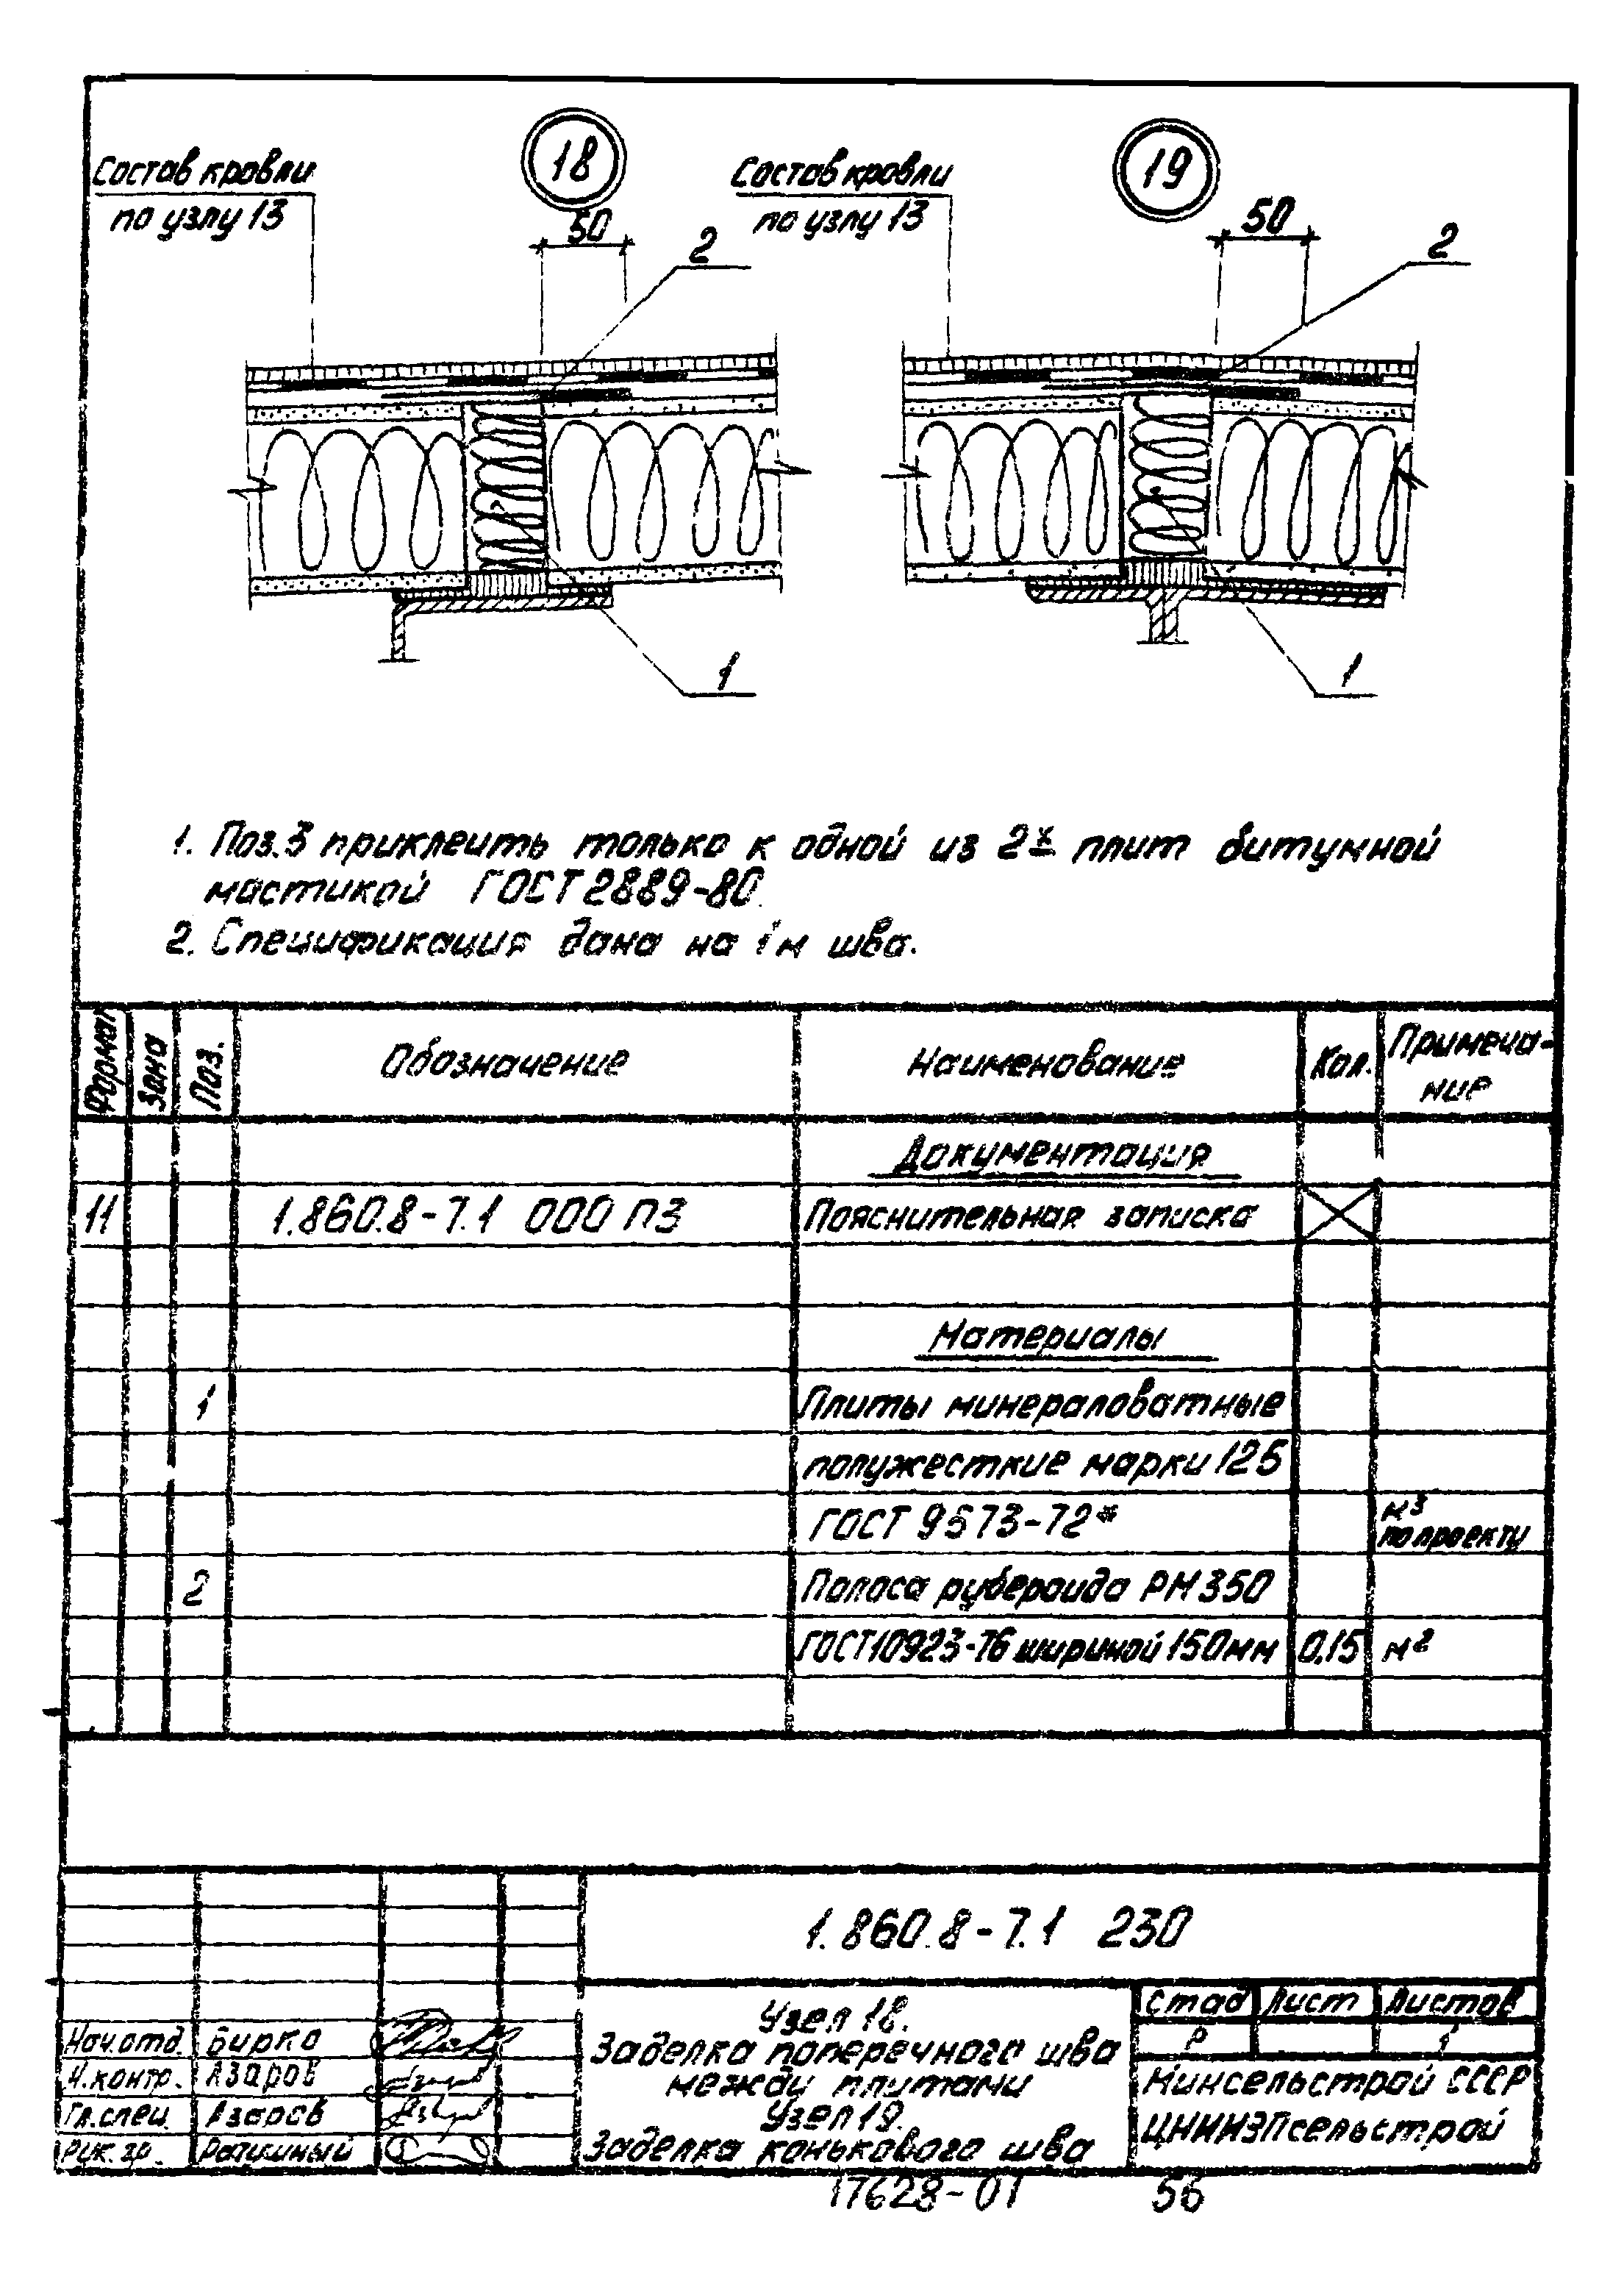 18
19
Состав кровли
по узлу 13
50
2
Состав кровли
по узлу 13
50
2
1
1
1. Поз.3 приклеить только к одной из 2х плит битумной
мастикой ГОСТ 2889-80.
2. Спецификация дана на 1м шва.
Формат Зона Поз. Обозначение Наименование Кол. Примеча-
ние
Документация
11 1.860.8-7.1 000 ПЗ Пояснительная записка
Материалы
1 Плиты минераловатные
полужесткие марки 125
ГОСТ 9573-72* м³
по проекту
2 Полоса рубероида РМ 350
ГОСТ 10923-76 шириной 150мм 0,15 м²
1.860.8-7.1 230
Узел 18.
Заделка поперечного шва
между плитами
Узел 19.
Заделка конькового шва
Стад Лист Листов
Р 1
Минсельстрой СССР
ЦНИИЭПсельстрой
Нач.отд. Бирко
Н.контр. Азаров
Гл.спец. Азаров
Рук.гр.
17628-01 56